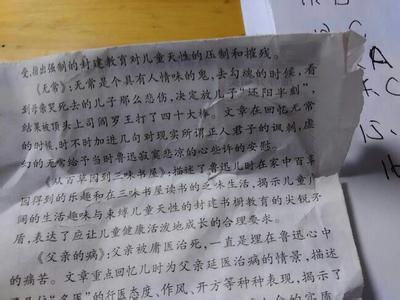 受,指出强制的封建教育对儿童天性的压制和摧残。
《无常》:无常是个具有人情味的鬼,去勾魂的时候,看
到母亲哭死去的儿子那么悲伤,决定放儿子“还阳半刻”,
结果被顶头上司阎罗王打了四十大棒。文章在回忆无常
的时候,时不时加进几句对现实所谓正人君子的讽刺,虚
幻的无常给予当时鲁迅寂寞悲凉的心些许的安慰。
《从百草园到三味书屋》:描述了鲁迅儿时在家中百草
园得到的乐趣和在三味书屋读书的乏味生活,揭示儿童广
阔的生活趣味与束缚儿童天性的封建书塾教育的尖锐矛
盾,表达了应让儿童健康活泼地成长的合理要求。
《父亲的病》:父亲被庸医治死,一直是埋在鲁迅心中
的痛苦。文章重点回忆儿时为父亲延医治病的情景,描述
位“名医”的行医态度、作风、开方等种种表现,揭示了
的实质
A
C
15.